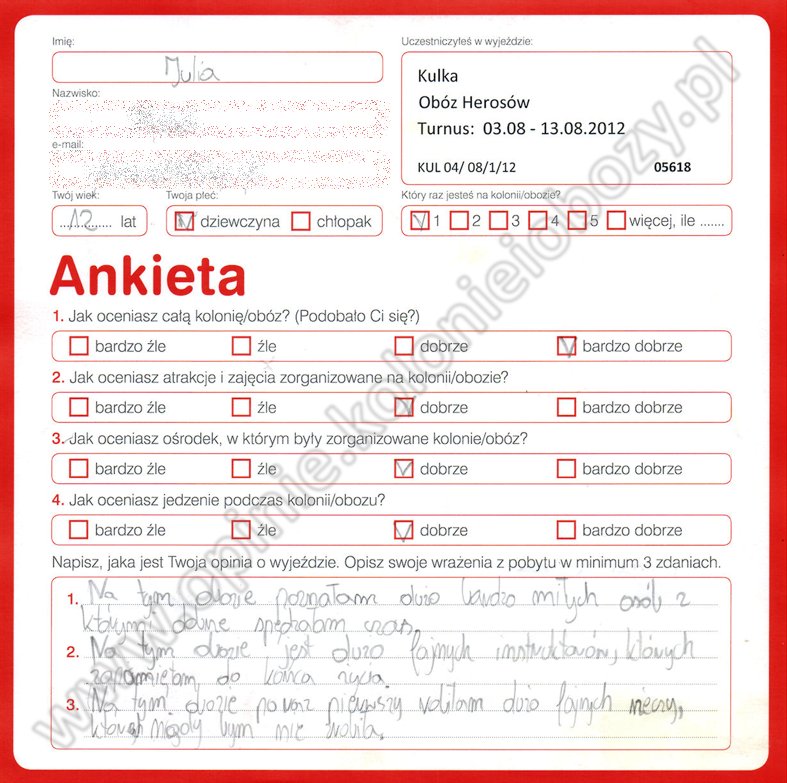 Imię:
Julia
Nazwisko:
e-mail:
Uczestniczyłeś w wyjeździe:
Kulka
Obóz Herosów
Turnus: 03.08 - 13.08.2012
KUL 04/ 08/1/12 05618
Twój wiek:
12 lat
Twoja płeć:
dziewczyna chłopak
Który raz jesteś na kolonii/obozie?
1 2 3 4 5 więcej, ile .......
Ankieta
1. Jak oceniasz całą kolonię/obóz? (Podobało Ci się?)
bardzo źle źle dobrze bardzo dobrze
2. Jak oceniasz atrakcje i zajęcia zorganizowane na kolonii/obozie?
bardzo źle źle dobrze bardzo dobrze
3. Jak oceniasz ośrodek, w którym były zorganizowane kolonie/obóz?
bardzo źle źle dobrze bardzo dobrze
4. Jak oceniasz jedzenie podczas kolonii/obozu?
bardzo źle źle dobrze bardzo dobrze
Napisz, jaka jest Twoja opinia o wyjeździe. Opisz swoje wrażenia z pobytu w minimum 3 zdaniach.
1. Na tym obozie poznałam dużo bardzo miłych osób z
którymi spędzałam czas.
2. Na tym obozie jest dużo fajnych instruktorów, których
zapamiętam do końca życia.
3. Na tym obozie pierwszy robiłam dużo fajnych rzeczy,
których nigdy bym nie zrobiła.
www.opinie.kolonieiobozy.pl